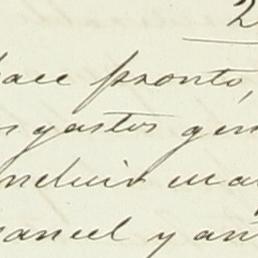 2
hace pronto,
s gastos gen
ncluir ma
anuel y an